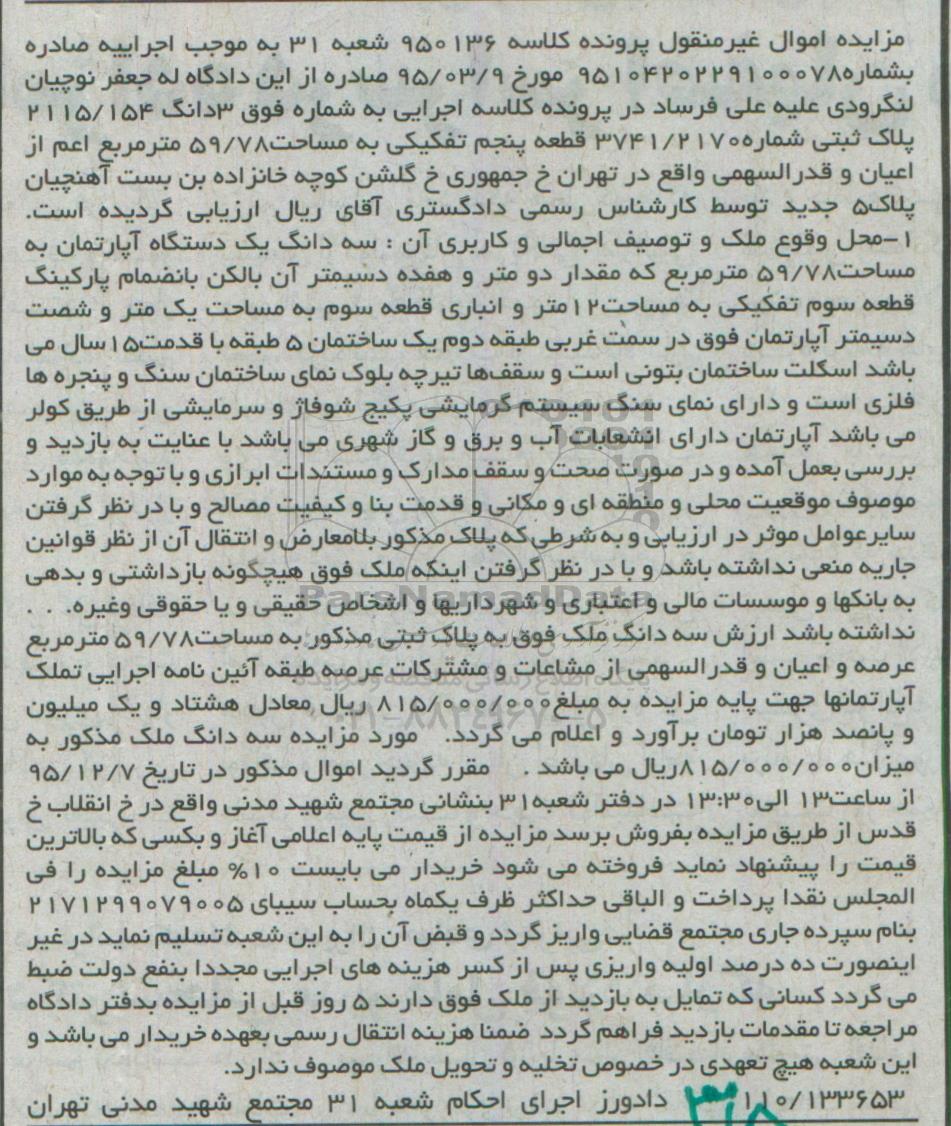 مزایده اموال غیرمنقول پرونده کلاسه ۹۵۰۱۳۶ شعبه ۳۱ به موجب اجراییه صادره
بشماره۹۵۱۰۴۲۰۲۲۹۱۰۰۰۷۸ مورخ ۹۵/۰۳/۹ صادره از این دادگاه له جعفر نوچیان
لنگرودی علیه علی فرساد در پرونده کلاسه اجرایی به شماره فوق ۳دانگ ۲۱۱۵/۱۵۴
پلاک ثبتی شماره۳۷۴۱/۲۱۷۰ قطعه پنجم تفکیکی به مساحت۵۹/۷۸ مترمربع اعم از
اعیان و قدرالسهمی واقع در تهران خ جمهوری خ گلشن کوچه خانزاده بن بست آهنچیان
پلاک۵ جدید توسط کارشناس رسمی دادگستری آقای ریال ارزیابی گردیده است.
۱-محل وقوع ملک و توصیف اجمالی و کاربری آن : سه دانگ یک دستگاه آپارتمان به
مساحت۵۹/۷۸ مترمربع که مقدار دو متر و هفده دسیمتر آن بالکن بانضمام پارکینگ
قطعه سوم تفکیکی به مساحت۱۲متر و انباری قطعه سوم به مساحت یک متر و شصت
دسیمتر آپارتمان فوق در سمت غربی طبقه دوم یک ساختمان ۵ طبقه با قدمت۱۵سال می
باشد اسکلت ساختمان بتونی است و سقف‌ها تیرچه بلوک نمای ساختمان سنگ و پنجره ها
فلزی است و دارای نمای سنگ سیستم گرمایشی پکیج شوفاژ و سرمایشی از طریق کولر
می باشد آپارتمان دارای انشعابات آب و برق و گاز شهری می باشد با عنایت به بازدید و
بررسی بعمل آمده و در صورت صحت و سقف مدارک و مستندات ابرازی و با توجه به موارد
موصوف موقعیت محلی و منطقه ای و مکانی و قدمت بنا و کیفیت مصالح و با در نظر گرفتن
سایرعوامل موثر در ارزیابی و به شرطی که پلاک مذکور بلامعارض و انتقال آن از نظر قوانین
جاریه منعی نداشته باشد و با در نظر گرفتن اینکه ملک فوق هیچگونه بازداشتی و بدهی
به بانکها و موسسات مالی و اعتباری و شهرداریها و اشخاص حقیقی و یا حقوقی وغیره. . .
ParsNamadData
نداشته باشد ارزش سه دانگ ملک فوق به پلاک ثبتی مذکور به مساحت۵۹/۷۸ مترمربع
عرصه و اعیان و قدرالسهمی از مشاعات و مشترکات عرصه طبقه آئین نامه اجرایی تملک
آپارتمانها جهت پایه مزایده به مبلغ۸۱۵/۰۰۰/۰۰۰ ریال معادل هشتاد و یک میلیون
و پانصد هزار تومان برآورد و اعلام می گردد. مورد مزایده سه دانگ ملک مذکور به
میزان۸۱۵/۰۰۰/۰۰۰ریال می باشد . مقرر گردید اموال مذکور در تاریخ ۹۵/۱۲/۷
از ساعت۱۳ الی۱۳:۳۰ در دفتر شعبه۳۱ بنشانی مجتمع شهید مدنی واقع در خ انقلاب خ
قدس از طریق مزایده بفروش برسد مزایده از قیمت پایه اعلامی آغاز و بکسی که بالاترین
قیمت را پیشنهاد نماید فروخته می شود خریدار می بایست ۱۰% مبلغ مزایده را فی
المجلس نقدا پرداخت و الباقی حداکثر ظرف یکماه بحساب سیبای ۲۱۷۱۲۹۹۰۷۹۰۰۵
بنام سپرده جاری مجتمع قضایی واریز گردد و قبض آن را به این شعبه تسلیم نماید در غیر
اینصورت ده درصد اولیه واریزی پس از کسر هزینه های اجرایی مجددا بنفع دولت ضبط
می گردد کسانی که تمایل به بازدید از ملک فوق دارند ۵ روز قبل از مزایده بدفتر دادگاه
مراجعه تا مقدمات بازدید فراهم گردد ضمنا هزینه انتقال رسمی بعهده خریدار می باشد و
این شعبه هیچ تعهدی در خصوص تخلیه و تحویل ملک موصوف ندارد.
۱۱۰/۱۳۳۶۵۳ دادورز اجرای احکام شعبه ۳۱ مجتمع شهید مدنی تهران